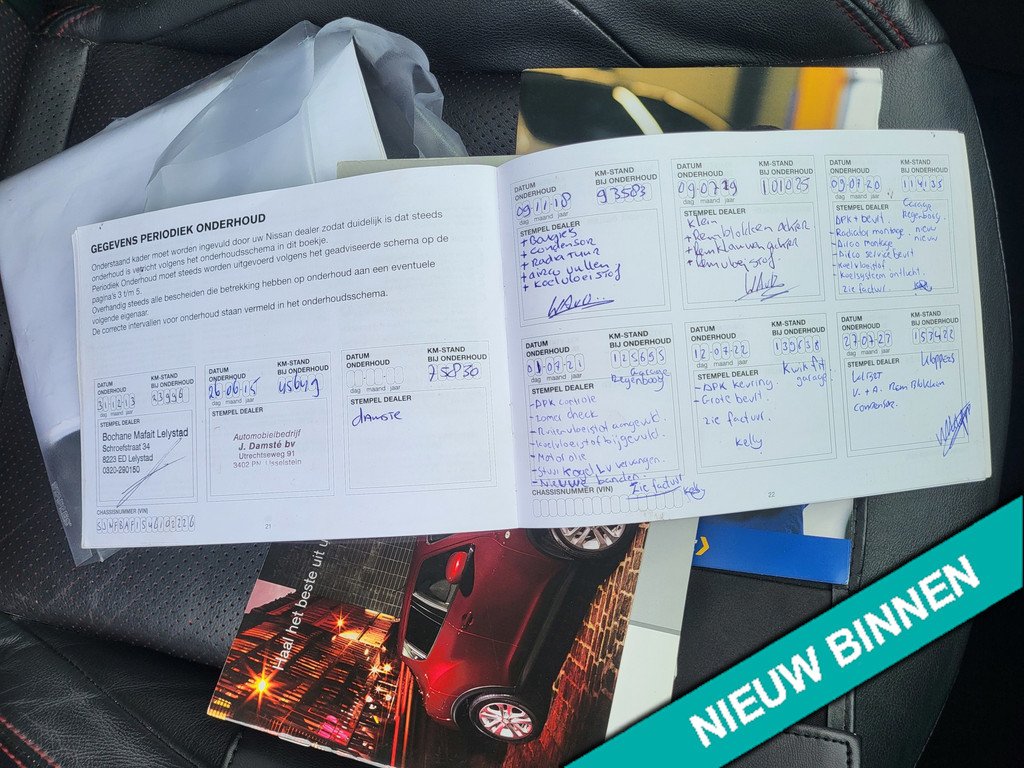 GEGEVENS PERIODIEK ONDERHOUD
Onderstaand kader moet worden ingevuld door uw Nissan dealer zodat duidelijk is dat steeds
onderhoud is verricht volgens het onderhoudsschema in dit boekje.
Periodiek Onderhoud moet steeds worden uitgevoerd volgens het geadviseerde schema op de
pagina's 3 t/m 5.
Overhandig steeds alle bescheiden die betrekking hebben op onderhoud aan een eventuele
volgende eigenaar.
De correcte intervallen voor onderhoud staan vermeld in het onderhoudsschema.
DATUM ONDERHOUD
KM-STAND BIJ ONDERHOUD
31-12-13
dag maand jaar
STEMPEL DEALER
Bochane Mafait Lelystad
Schroefstraat 34
8223 ED Lelystad
0320-290150
DATUM ONDERHOUD
KM-STAND BIJ ONDERHOUD
26-06-15
dag maand jaar
STEMPEL DEALER
Automobielbedrijf
J. Damsté bv
Utrechtseweg 91
3402 PN IJsselstein
DATUM ONDERHOUD
KM-STAND BIJ ONDERHOUD
75830
dag maand jaar
STEMPEL DEALER
damste
CHASSISNUMMER (VIN)
21
DATUM ONDERHOUD
KM-STAND BIJ ONDERHOUD
09-11-18
93583
dag maand jaar
STEMPEL DEALER
+ Bougies
+ condensor
+ Radiatuur
+ airco vullen
+ koelvloeistof
DATUM ONDERHOUD
KM-STAND BIJ ONDERHOUD
09-07-19
101025
dag maand jaar
STEMPEL DEALER
klein
+ Remblokken achter
+ Remklauwen achter
+ Remvloeistof
DATUM ONDERHOUD
KM-STAND BIJ ONDERHOUD
09-07-20
114135
dag maand jaar
Garage
Regenboog
STEMPEL DEALER
APK + beurt.
- Radiator montage nieuw
- Airco montage nieuw
- Airco service beurt
- Koelvloeistof
- Koelsysteem ontlucht.
zie factuur.
DATUM ONDERHOUD
KM-STAND BIJ ONDERHOUD
01-07-21
125655
dag maand jaar
Garage
Regenboog
STEMPEL DEALER
- APK controle
- zomer check
- Ruitenvloeistof aangevuld.
- koelvloeistof bijgevuld.
- Motorolie
- Stuurkogel Lv vervangen.
- Nieuwe banden.
Zie factuur
CHASSISNUMMER (VIN)
DATUM ONDERHOUD
KM-STAND BIJ ONDERHOUD
12-07-22
139638
dag maand jaar
STEMPEL DEALER
Kwik fit
garage
- APK keuring
- Grote beurt.
zie factuur.
Kelly
DATUM ONDERHOUD
KM-STAND BIJ ONDERHOUD
27-07-23
153422
dag maand jaar
STEMPEL DEALER
V. + A. Remblokken
22
Haal het beste uit u
NIEUW BINNEN